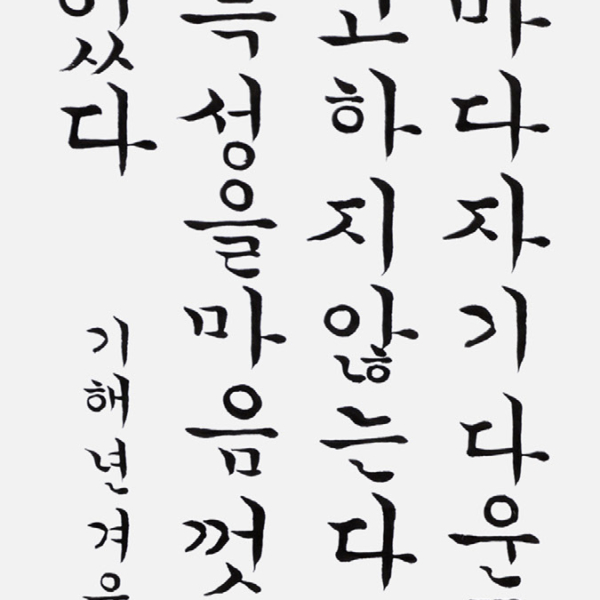 마다자기다운
고하지않는다
특성을마음껏
다
기해년겨